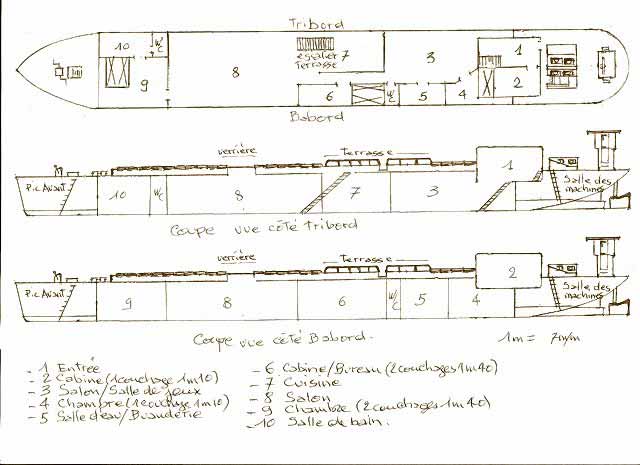 Tribord
10
W/C
9
8
escalier 7
Terrasse
3
1
2
6
W/C
5
4
Babord
verrière
Terrasse
1
Pic Avant
10
W/C
8
7
3
Salle des
machines
Coupe vue côté Tribord
verrière
Terrasse
2
Pic Avant
9
8
6
W/C
5
4
Salle des
machines
Coupe vue côté Babord.
1m = 7m/m
- 1 Entrée
- 2 Cabine (1 couchage 1m10)
- 3 Salon/Salle de jeux
- 4 Chambre (1 couchage 1m10)
- 5 Salle d'eau/Buanderie
- 6 Cabine/Bureau (2 couchages 1m40)
- 7 Cuisine
- 8 Salon
- 9 Chambre (2 couchages 1m40)
- 10 Salle de bain.